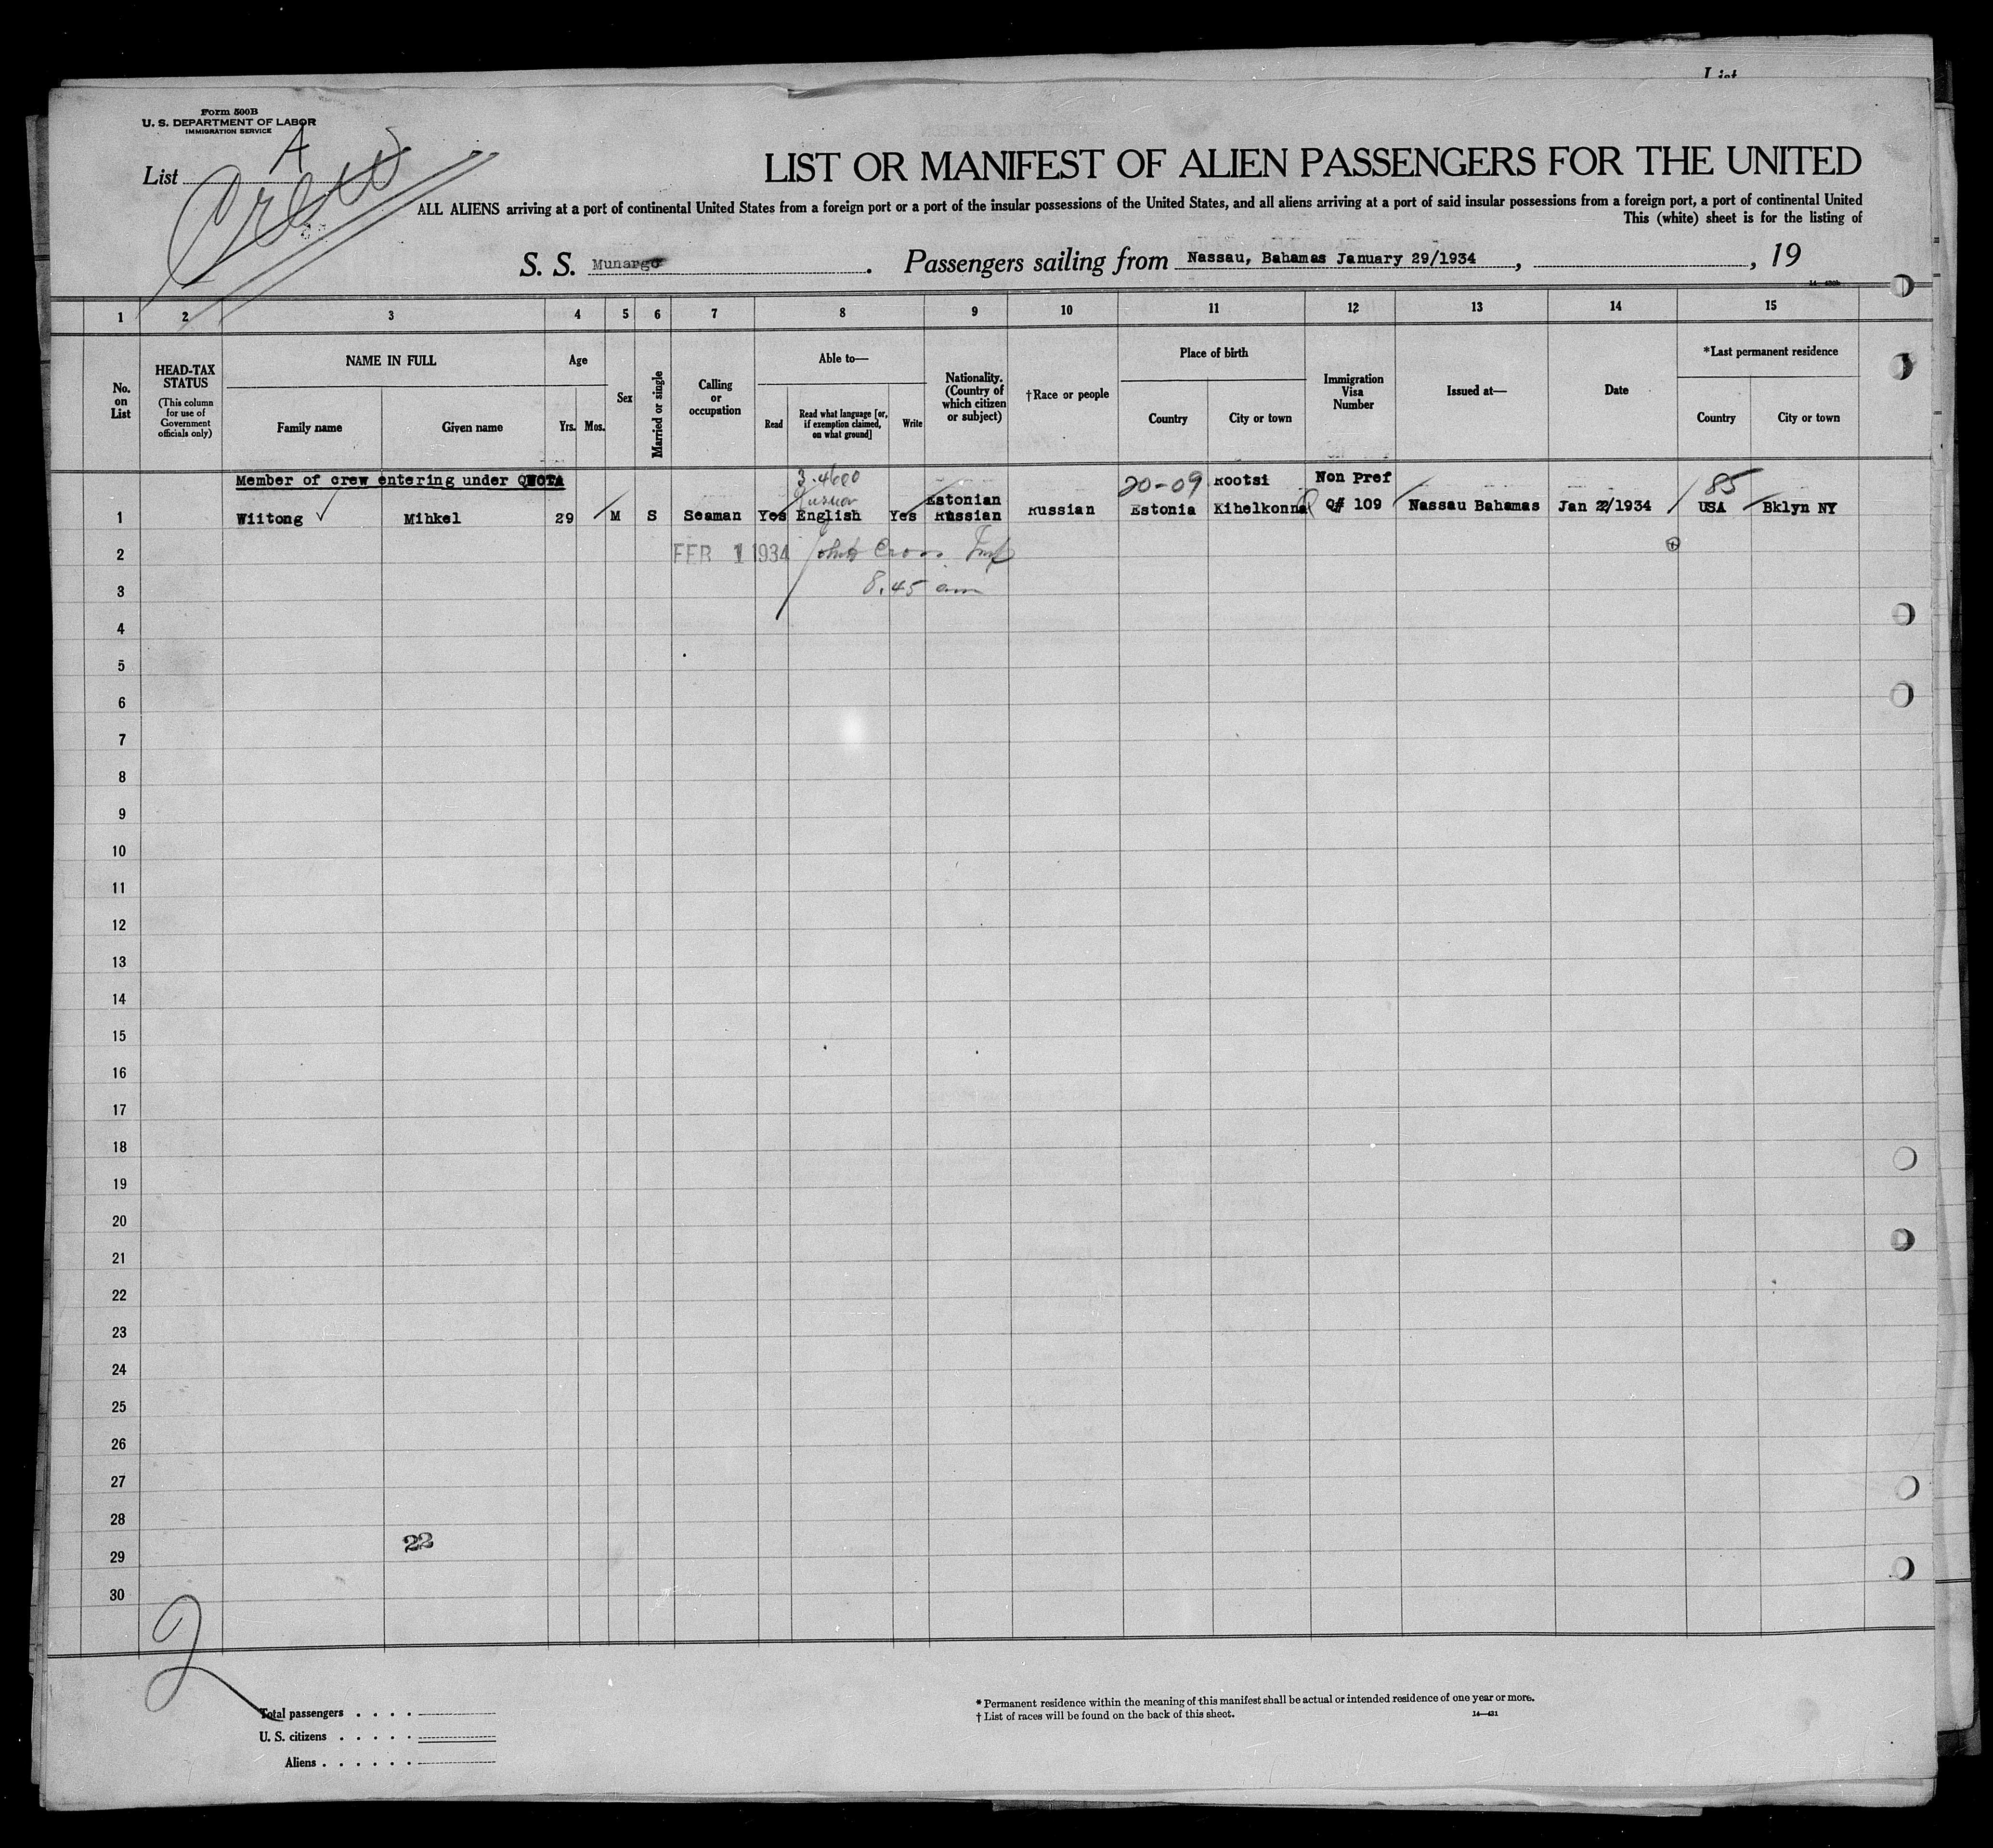 List
Form 500B
U. S. DEPARTMENT OF LABOR
IMMIGRATION SERVICE
List A
Crew
LIST OR MANIFEST OF ALIEN PASSENGERS FOR THE UNITED
ALL ALIENS arriving at a port of continental United States from a foreign port or a port of the insular possessions of the United States, and all aliens arriving at a port of said insular possessions from a foreign port, a port of continental United
This (white) sheet is for the listing of
S. S. Munargo. Passengers sailing from Nassau, Bahamas January 29/1934, , 19
1 2 3 4 5 6 7 8 9 10 11 12 13 14 15
No. on List
HEAD-TAX STATUS
(This column for use of Government officials only)
NAME IN FULL
Family name
Given name
Age
Yrs.
Mos.
Sex
Married or single
Calling or occupation
Able to—
Read
Read what language [or, if exemption claimed, on what ground]
Write
Nationality. (Country of which citizen or subject)
†Race or people
Place of birth
Country
City or town
Immigration Visa Number
Issued at—
Date
*Last permanent residence
Country
City or town
Member of crew entering under QUOTA 3.4600 Estonian 20-09 Rootsi Non Pref 85
1 Wiitong Mihkel 29 M S Seaman Yes English Yes Russian Russian Estonia Kihelkonna Q# 109 Nassau Bahamas Jan 22/1934 USA Bklyn NY
2 FEB 1 1934 Cross
3 8.45 am
4
5
6
7
8
9
10
11
12
13
14
15
16
17
18
19
20
21
22
23
24
25
26
27
28
22
29
30
2
Total passengers . . . .
U. S. citizens . . . . .
Aliens . . . . . .
* Permanent residence within the meaning of this manifest shall be actual or intended residence of one year or more.
† List of races will be found on the back of this sheet.
14—431